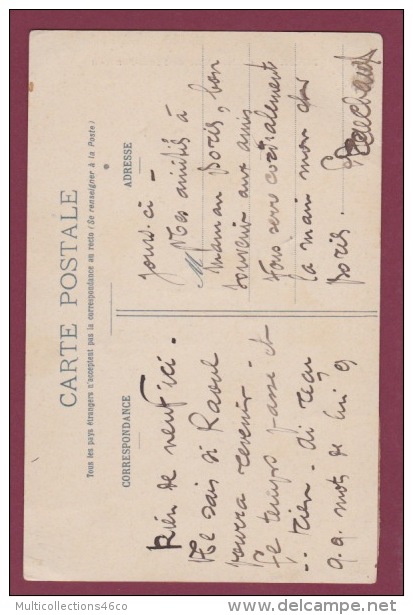 CARTE POSTALE
Tous les pays étrangers n'acceptent pas la correspondance au recto (Se renseigner à la Poste)
CORRESPONDANCE
ADRESSE
Rien de neuf ici.
Ne sais si Raoul
pourra revenir. et
le temps passe et
rien. ai reçu
q.q. mots de lui
jours-ci -
Mes amitiés à
Maman Boris, bon
souvenir aux amis
Vous serre cordialement
la main mon cher
Boris.
Multicollections46co
www.delcampe.net